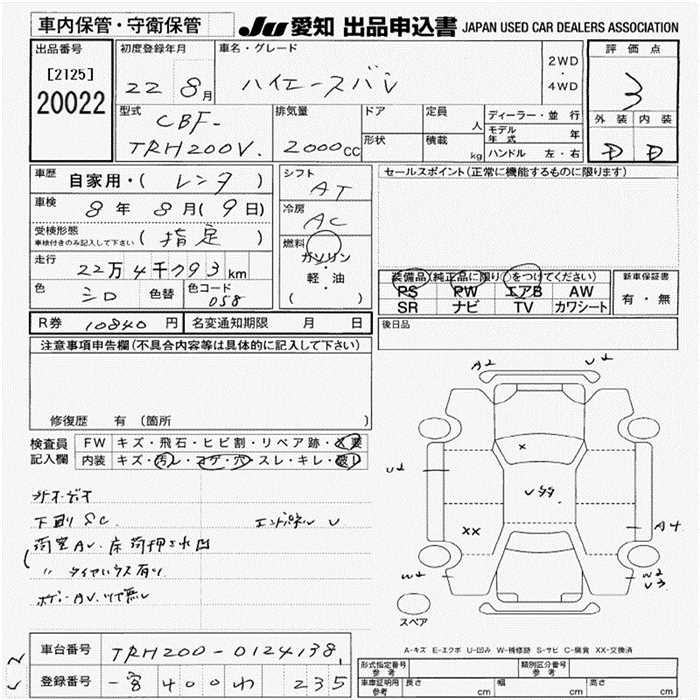 車内保管・守衛保管
JU 愛知 出品申込書 JAPAN USED CAR DEALERS ASSOCIATION
出品番号
[2125]
20022
初度登録年月
22 8月
車名・グレード
ハイエースバン
2WD
・
4WD
評価点
3
外装 内装
D D
型式
CBF-
TRH200V.
排気量
2000cc
ドア
形状
定員
人
積載
kg
ディーラー・並行
モデル年式 年
ハンドル 左・右
車歴
自家用・( レンタ )
車検
8年 8月(9日)
受検形態
車検付きのみ記入して下さい
( 指定 )
走行
22万4千793km
色
シロ
色替
色コード
058
シフト
AT
冷房
AC
燃料
ガソリン
・
軽・油
( )
セールスポイント(正常に機能するものに限ります)
装備品(純正品に限り○をつけてください)
PS PW エアB AW
SR ナビ TV カワシート
新車保証書
有・無
後日品
R券 10840 円 名変通知期限 月 日
注意事項申告欄(不具合内容等は具体的に記入して下さい)
修復歴 有 (箇所
検査員
記入欄
FW キズ・飛石・ヒビ割・リペア跡・X要
内装 キズ・汚レ・コゲ・穴・スレ・キレ・破レ
下廻SC
エンドパネル U
荷室AV.床荷押され凹
〃 タイヤハウス有り
ボデーAV.ツヤ無し
A2
U2
U1
X
U99.
XX
A4
W2
W2
U3
スペア
A-キズ E-エクボ U-凹み W-補修跡 S-サビ C-腐食 XX-交換済
車台番号
TRH200-0124138
登録番号
400わ 235
形式指定番号
参考
類別区分番号
参考
車庫証明用
参考
長さ cm
幅 cm
高さ cm